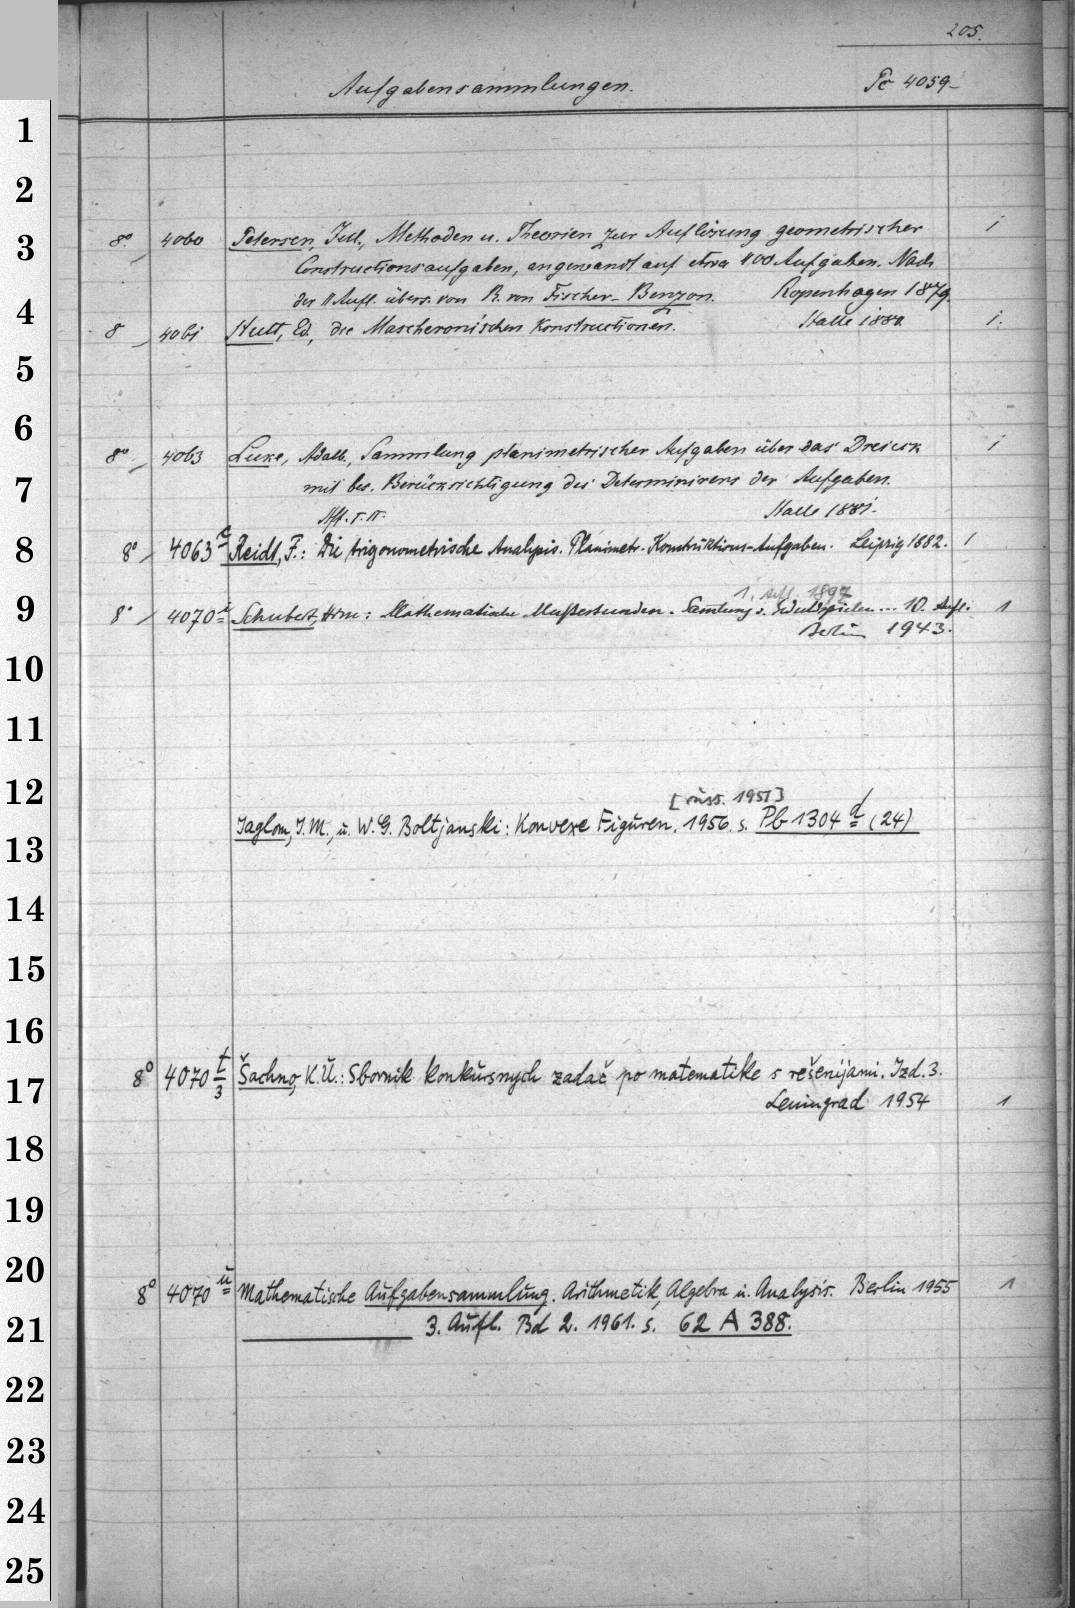 205.
Aufgabensammlungen. Pc 4059-
1
2
3 8° 4060 Petersen, Jul., Methoden u. Theorien zur Auflösung geometrischer 1
Constructionsaufgaben, angewandt auf etwa 400 Aufgaben. Nach
der II Aufl. übers. von R. von Fischer-Benzon. Kopenhagen 1879
4 8 4061 Hutt, Ed., die Mascheronischen Konstructionen. Halle 1880. 1.
5
6
8° 4063 Luke, Adalb., Sammlung planimetrischer Aufgaben über das Dreieck 1
7 mit bes. Berücksichtigung des Determinirens der Aufgaben.
Halle 1881.
8 8° 4063 a Reidt, F.: Die trigonometrische Analysis. Planimetr. Konstruktions-Aufgaben. Leipzig 1882. 1
1. Aufl. 1897
9 8° 4070 i Schubert, Hrm: Mathematische Mußestunden. Sammlung v. Geduldspielen ... 10. Aufl. 1
Berlin 1943.
10
11
12 [russ. 1951]
Jaglom, I.M., u. W.G. Boltjanski: Konvexe Figuren. 1956. s. Pb 1304 d (24)
13
14
15
16
8° 4070 t/3 Šachno, K.U.: Sbornik konkursnych zadač po matematike s rešenijami. Izd. 3.
17 Leningrad 1954 1
18
19
20
8° 4070 u Mathematische Aufgabensammlung. Arithmetik, Algebra u. Analysis. Berlin 1955 1
21 3. Aufl. Bd 2. 1961. s. 62 A 388.
22
23
24
25